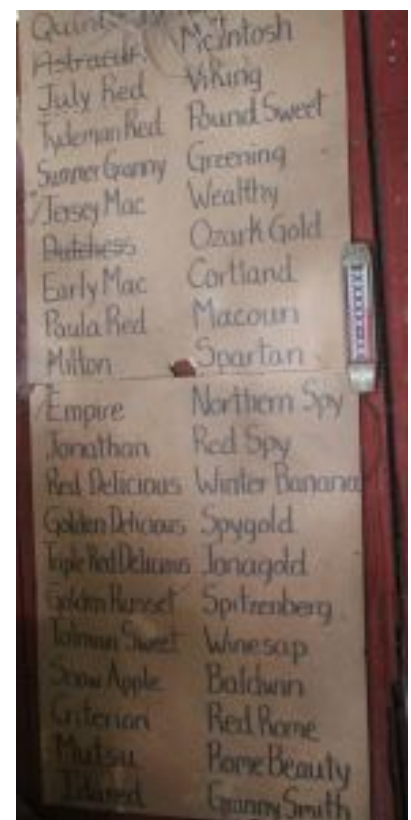 Quint
Astracan
July Red
Tydeman Red
Summer Granny
Jersey Mac
Dutchess
Early Mac
Paula Red
Milton
Empire
Jonathan
Red Delicious
Golden Delicious
Triple Red Delicious
Golden Russet
Tolman Sweet
Snow Apple
Criterion
Mutsu
Idared
McIntosh
Viking
Pound Sweet
Greening
Wealthy
Ozark Gold
Cortland
Macoun
Spartan
Northern Spy
Red Spy
Winter Banana
Spygold
Jonagold
Spitzenberg
Winesap
Baldwin
Red Rome
Rome Beauty
Granny Smith